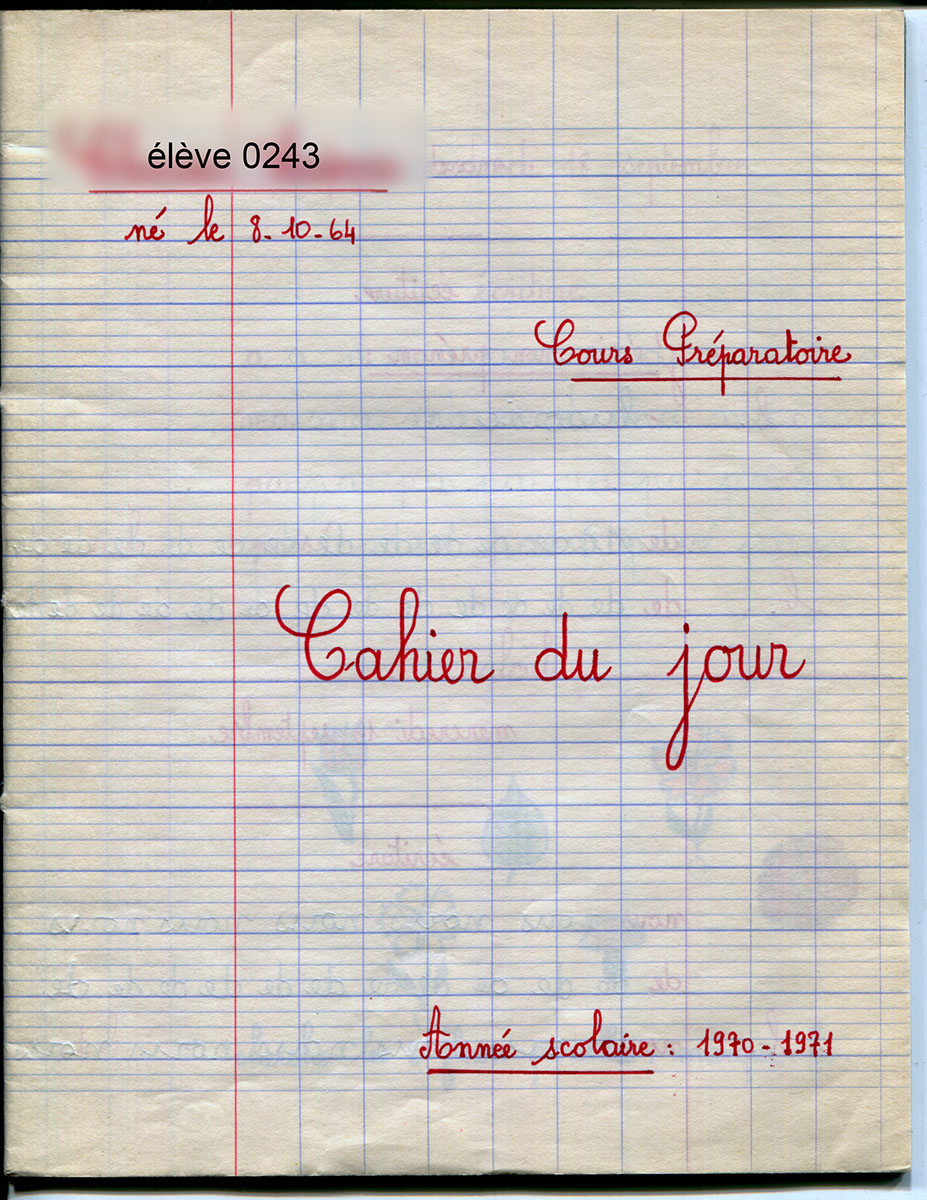 élève 0243
né le 8-10-64
Cours Préparatoire
Cahier du jour
Année scolaire : 1970-1971